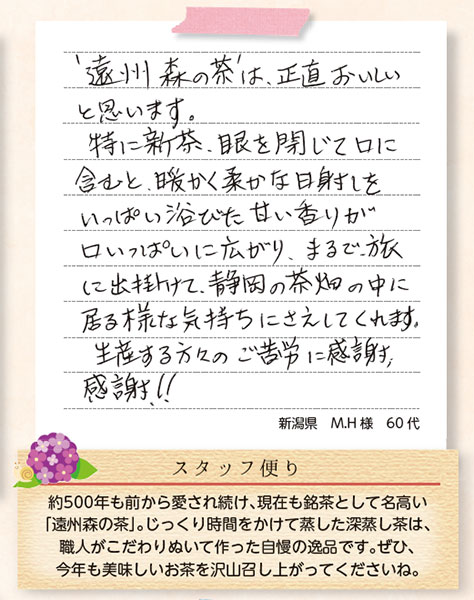 '遠州 森の茶'は、正直おいしい
と思います。
特に新茶、眼を閉じて口に
含むと、暖かく柔かな日射しを
いっぱい浴びた甘い香りが
口いっぱいに広がり、まるで旅
に出掛けて、静岡の茶畑の中に
居る様な気持ちにさえしてくれます。
生産する方々のご苦労に感謝、
感謝!!
新潟県 M.H様 60代
スタッフ便り
約500年も前から愛され続け、現在も銘茶として名高い
「遠州森の茶」。じっくり時間をかけて蒸した深蒸し茶は、
職人がこだわりぬいて作った自慢の逸品です。ぜひ、
今年も美味しいお茶を沢山召し上がってくださいね。